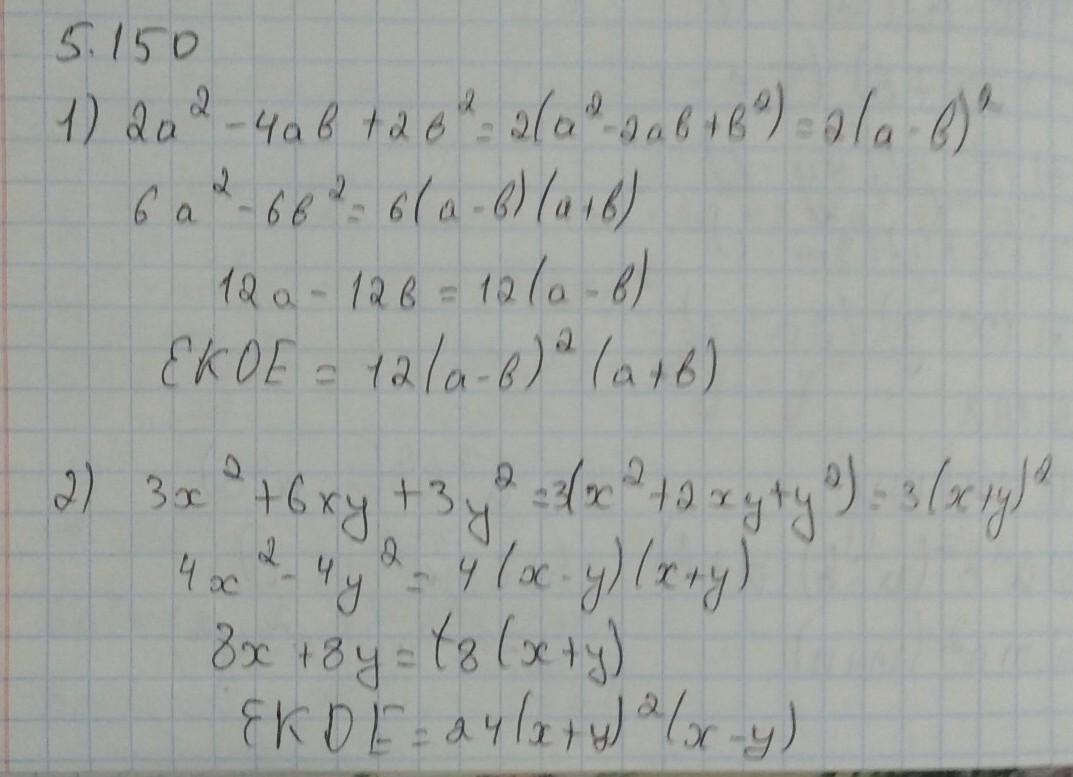 5.150
1) 2a² - 4ab + 2b² = 2(a² - 2ab + b²) = 2(a - b)²
6a² - 6b² = 6(a - b)(a + b)
12a - 12b = 12(a - b)
EKOE = 12(a - b)² (a + b)
2) 3x² + 6xy + 3y² = 3(x² + 2xy + y²) = 3(x + y)²
4x² - 4y² = 4(x - y)(x + y)
8x + 8y = (8(x + y)
EKOE = 24(x + y)² (x - y)